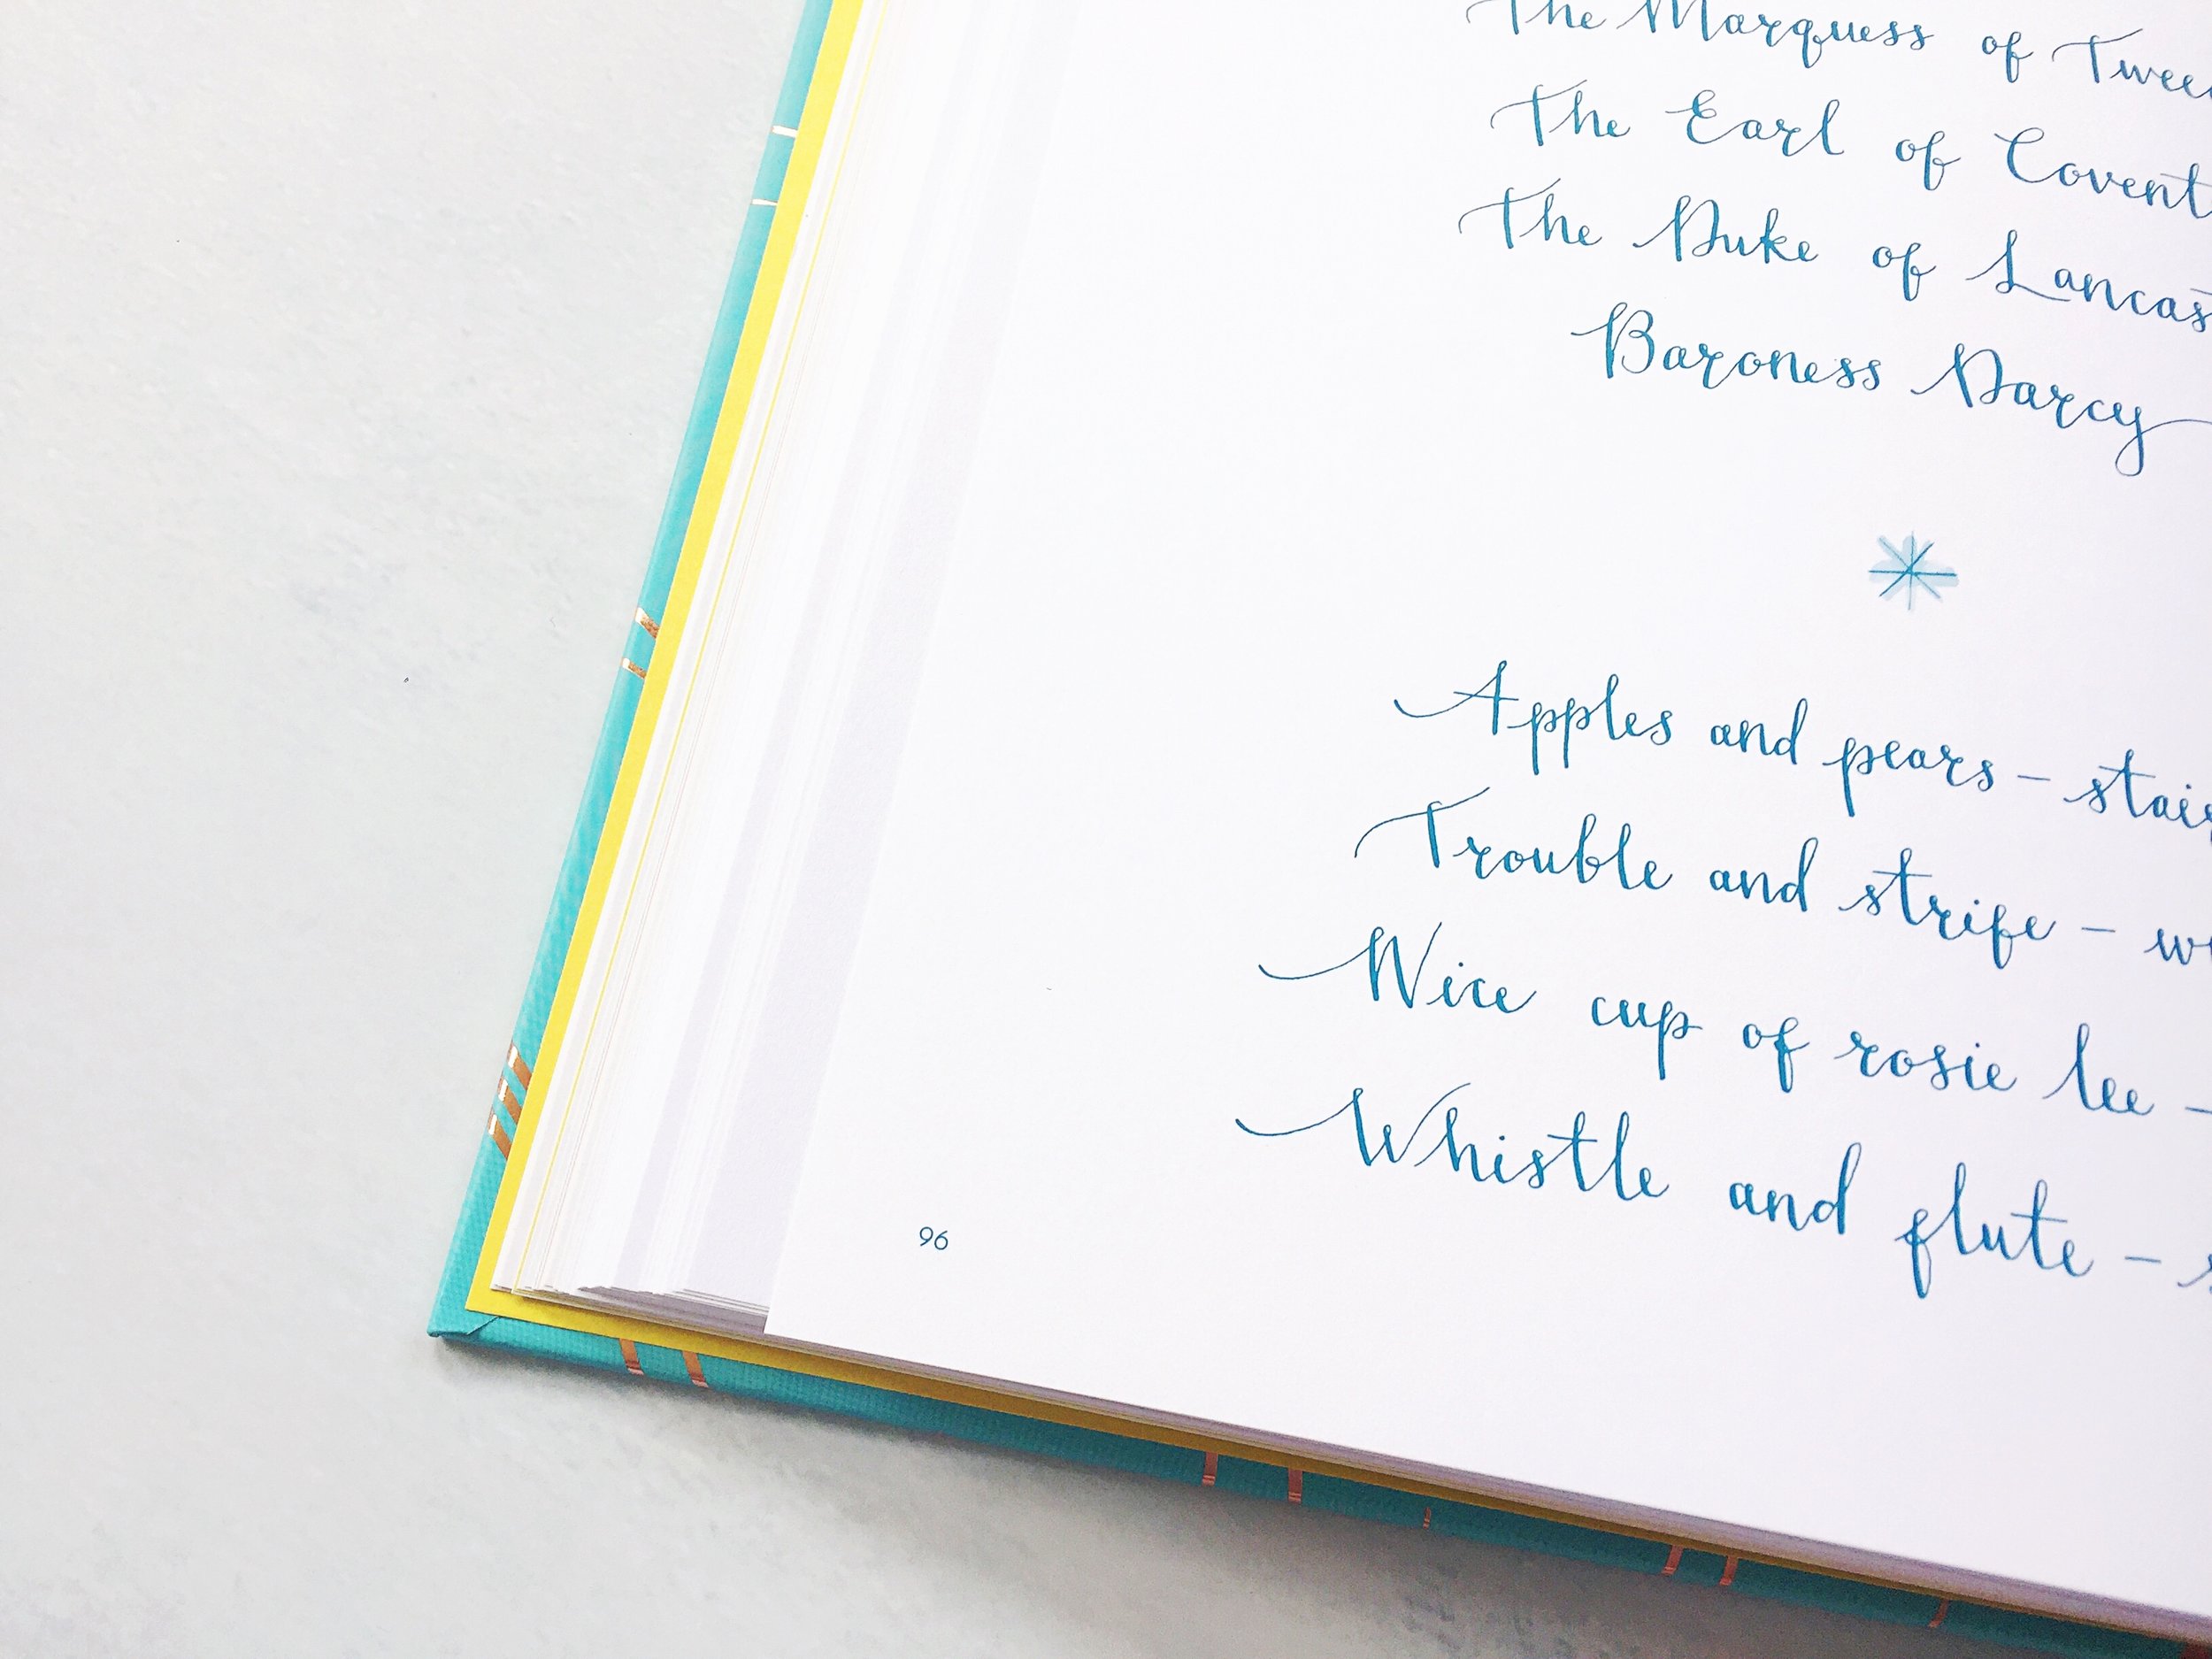 The Marquess of Twee
The Earl of Covent
The Duke of Lancas
Baroness Darcy
Apples and pears - stair
Trouble and strife - wi
Nice cup of rosie lee -
Whistle and flute - s
96